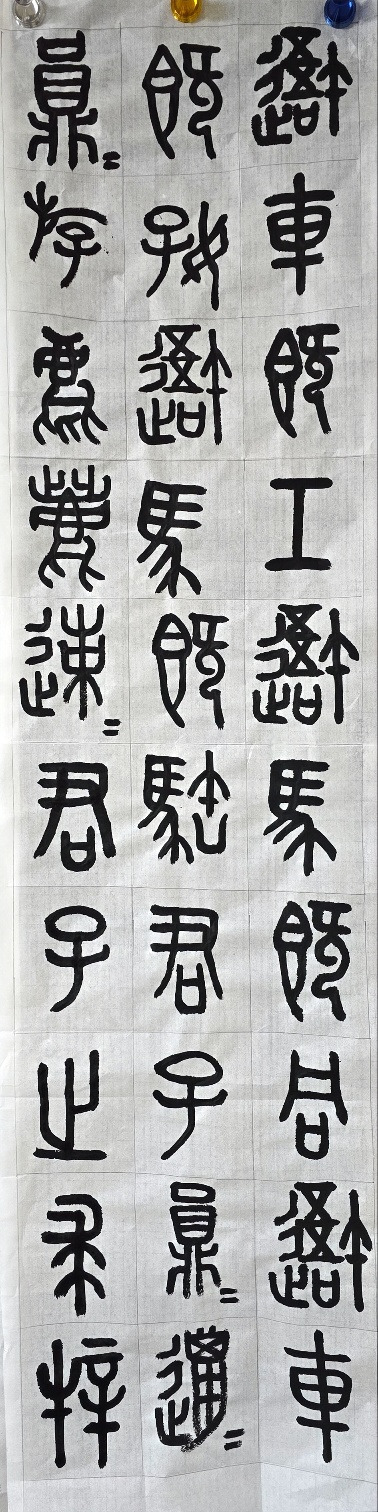 吾車既工吾馬既同吾車
既好吾馬既君子員=邋=
員=斿麀鹿速=君子之求